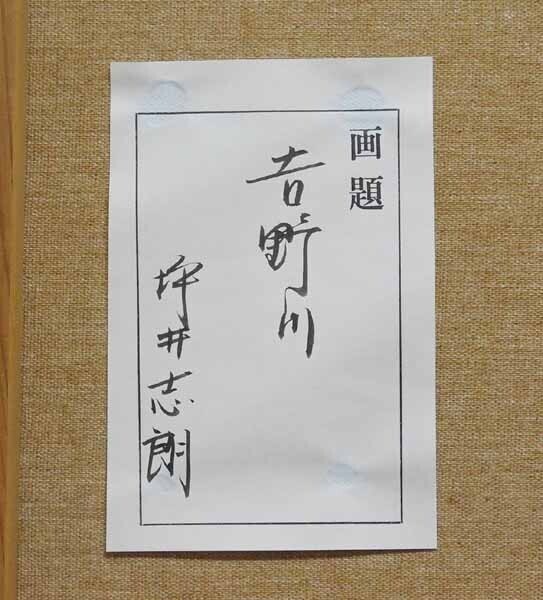 画題
𠮷野川
坪井志朗